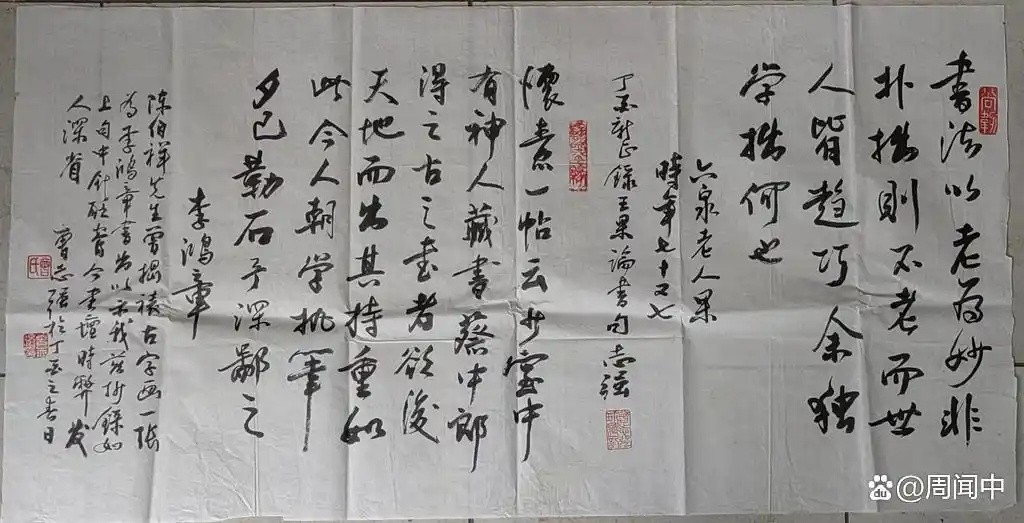 书法以老为妙非
朴拙则不老而世
人皆趋巧余独
学拙何也
六泉老人果
時年七十又七
丁丑新正錄王果論書句 志強
懷素一帖云少室中
有神人藏書蔡中郎
得之古之書者欲後
天地而出其持重如
此今人朝学執筆
夕已勒石予深鄙之
李鴻章
陈伯祥先生曾揭裱古字画一張
為李鴻章書 以示我 抄錄如
上句中針砭書今書壇時弊發
人深省
曹志強 於丁丑之春日
百度 @周闻中